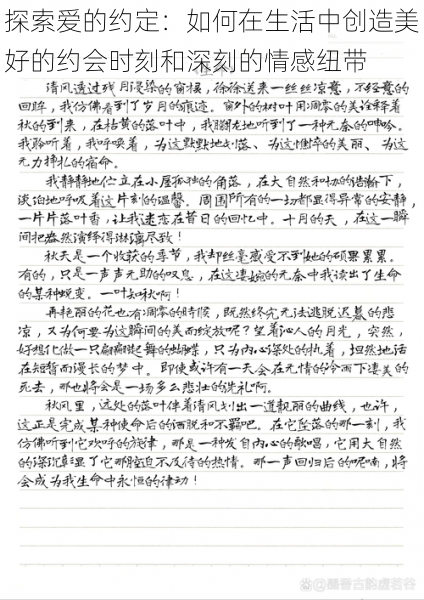 探索爱的约定：如何在生活中创造美
好的约会时刻和深刻的情感纽带
清风透过残月浸染的窗棂，徐徐送来一丝丝凉意，不经意的
回眸，我仿佛看到了岁月的痕迹。窗外的树叶用凋零的美诠释着
秋的到来，在枯黄的落叶中，我朦胧地听到了一种无奈的呻吟。
我聆听着，我呼唤着，为这默默地划落、为这憔悴的美丽、为这
无力挣扎的宿命。
我静静地伫立在小屋孤独的角落，在大自然和协的浩瀚下，
淡泊地呼吸着这片刻的温馨。周围所有的一切都显得异常的安静，
一片片落叶香，让我迷恋在昔日的回忆中。十月的天，在这一瞬
间把盎然演绎得淋漓尽致！
秋天是一个收获的季节，我却丝毫感受不到她的硕果累累。
有的，只是一声声无助的叹息，在这凄婉的无奈中我读出了生命
的某种蜕变。一叶知秋啊！
再艳丽的花也有凋零的时候，既然终究无法逃脱迟暮的悲
凉，又为何要为这瞬间的美而绽放呢？望着沁人的月光，突然，
好想化做一只翩翩起舞的蝴蝶，只为内心深处的执着，坦然地活
在短暂而漫长的梦中。即使或许有一天会在无情的冷雨下凄美的
死去，那也将会是一场多么悲壮的洗礼啊。
秋风里，远处的落叶伴着清风划出一道靓丽的曲线，也许，
这正是完成某种使命后的洒脱和不羁吧。在它坠落的那一刻，我
仿佛听到它欢呼的旋律，那是一种发自内心的歌唱，它用大自然
的深沉彰显了它那迫不及待的热情。那一声回归后的呢喃，将
会成为我生命中永恒的律动！